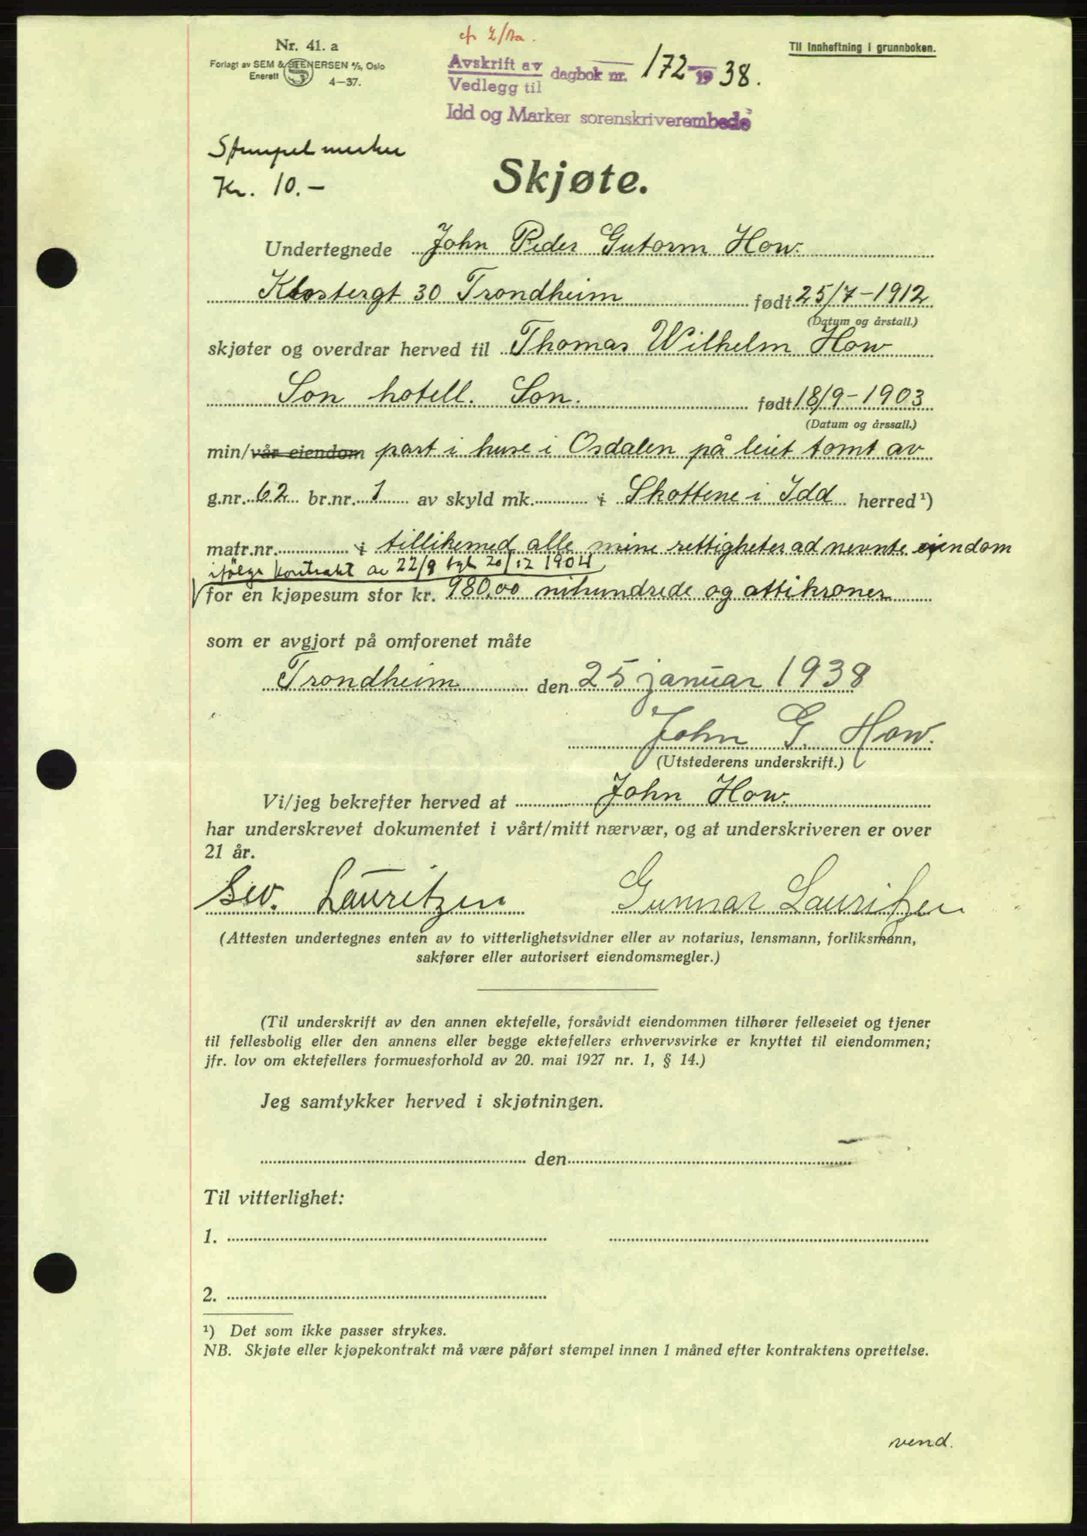 Nr. 41. a
Forlagt av SEM & STENERSEN A/S, Oslo
Enerett
4—37.
Til Innheftning i grunnboken.
Avskrift av
Vedlegg til
dagbok nr. 172 19 38.
Idd og Marker sorenskriverembede
Stempelmerke
Kr. 10.-
Skjøte.
Undertegnede John Peder Gutorm How.
Klostergt 30 Trondheim født 25/7-1912
(Datum og årstall.)
skjøter og overdrar herved til Thomas Wilhelm How
Son hotell. Son. født 18/9-1903
(Datum og årssall.)
min/vår eiendom part i huse i Osdalen på leiet tomt av
g.nr. 62 br.nr. 1 av skyld mk. i Skottene i Idd herred ¹)
matr.nr. i tillikemed alle mine rettigheter ad nevnte eiendom
ifølge kontrakt av 22/9 tgl. 20/12 1904
for en kjøpesum stor kr. 980,00 nihundrede og åttikroner
som er avgjort på omforenet måte
Trondheim den 25 januar 1938
John G. How.
(Utstederens underskrift.)
Vi/jeg bekrefter herved at John How.
har underskrevet dokumentet i vårt/mitt nærvær, og at underskriveren er over
21 år.
Sev. Lauritzen Gunnar Lauritzen
(Attesten undertegnes enten av to vitterlighetsvidner eller av notarius, lensmann, forliksmann,
sakfører eller autorisert eiendomsmegler.)
(Til underskrift av den annen ektefelle, forsåvidt eiendommen tilhører felleseiet og tjener
til fellesbolig eller den annens eller begge ektefellers erhvervsvirke er knyttet til eiendommen;
jfr. lov om ektefellers formuesforhold av 20. mai 1927 nr. 1, § 14.)
Jeg samtykker herved i skjøtningen.
den
Til vitterlighet:
1.
2.
¹) Det som ikke passer strykes.
NB. Skjøte eller kjøpekontrakt må være påført stempel innen 1 måned efter kontraktens oprettelse.
vend.